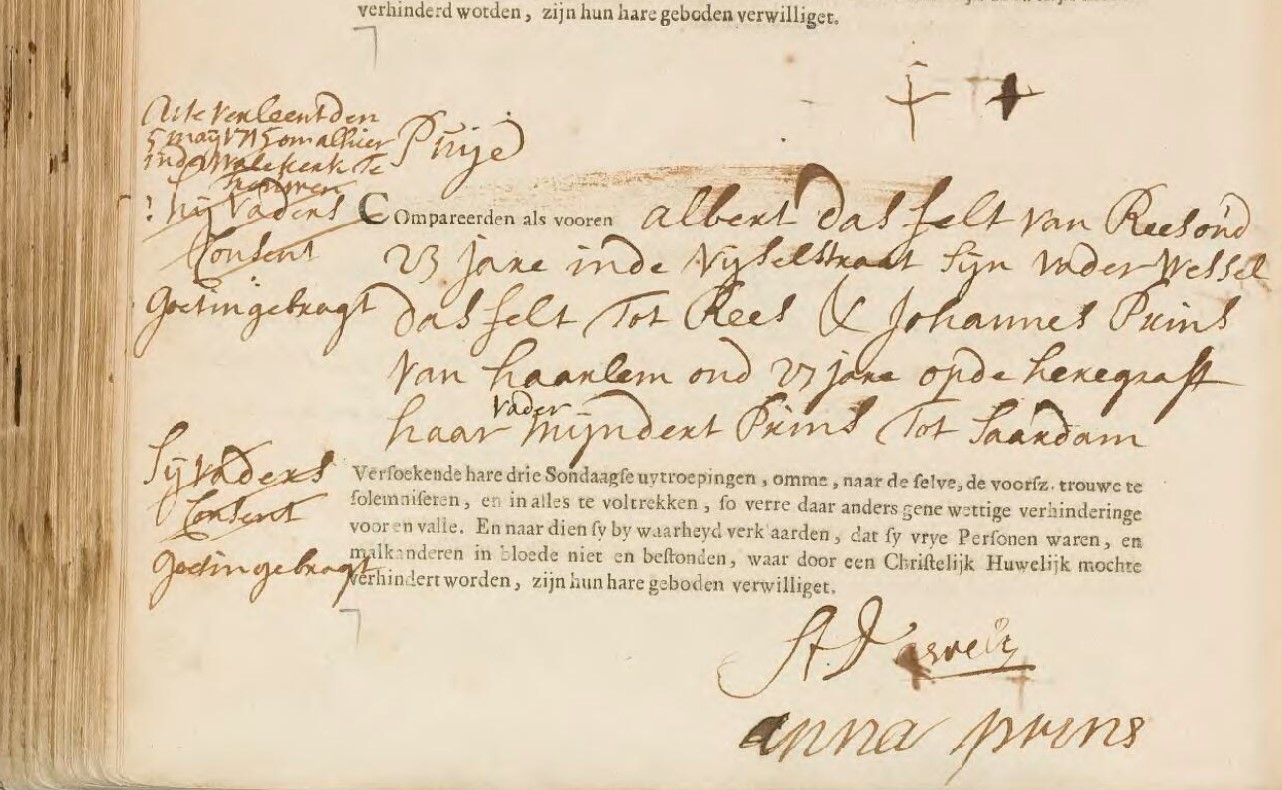 verhinderd worden, zijn hun hare geboden verwilliget.
Acte verleent den
5 maij 1715 om alhier
in de walekerk te
trouwen
Puije
hij vaders
Consent
goet ingebragt
Compareerden als vooren albert das felt van Rees oud
23 jare inde Vijselstraat Sijn vader Wessel
das felt Tot Rees & Johannes Prins
van haarlem oud 27 jare opde heregraft
haar vader mijndert Prins Tot Saardam
Sij vaders
Consent
goet ingebragt
Versoekende hare drie Sondaagse uytroepingen, omme, naar de selve, de voorsz. trouwe te
solemniseren, en in alles te voltrekken, so verre daar anders gene wettige verhinderinge
voor en valle. En naar dien sy by waarheyd verklaarden, dat sy vrye Personen waren, en
malkanderen in bloede niet en bestonden, waar door een Christelijk Huwelijk mochte
verhindert worden, zijn hun hare geboden verwilliget.
anna prins